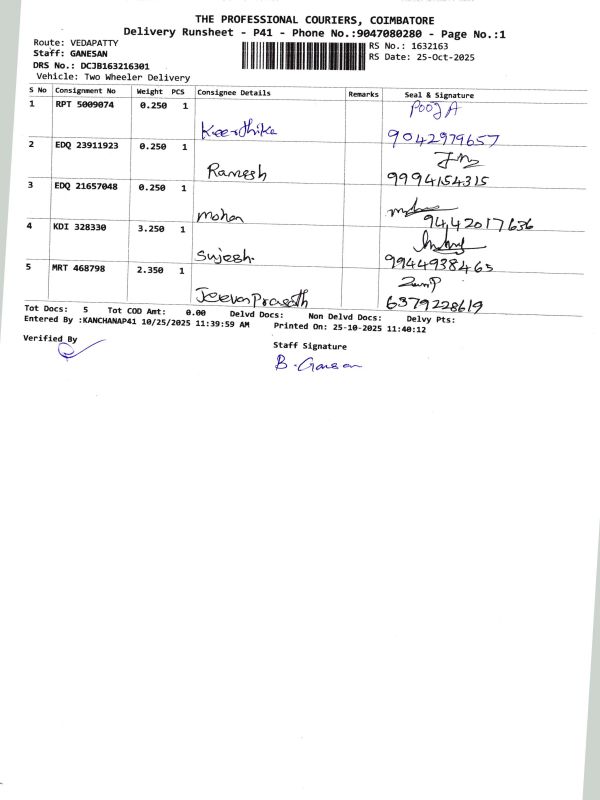 THE PROFESSIONAL COURIERS, COIMBATORE
Delivery Runsheet - P41 - Phone No.:9047080280 - Page No.:1
Route: VEDAPATTY
RS No.: 1632163
Staff: GANESAN
RS Date: 25-Oct-2025
DRS No.: DCJB163216301
Vehicle: Two Wheeler Delivery
S No Consignment No Weight PCS Consignee Details Remarks Seal & Signature
1 RPT 5009074 0.250 1 Keerthika PooJA
9042979657
2 EDQ 23911923 0.250 1 Ramesh
9994154315
3 EDQ 21657048 0.250 1 mohan
9442017636
4 KDI 328330 3.250 1 Sujesh.
9944938465
5 MRT 468798 2.350 1 JeevanPrasath
6379228619
Tot Docs: 5 Tot COD Amt: 0.00 Delvd Docs: Non Delvd Docs: Delvy Pts:
Entered By :KANCHANAP41 10/25/2025 11:39:59 AM Printed On: 25-10-2025 11:40:12
Verified By
Staff Signature